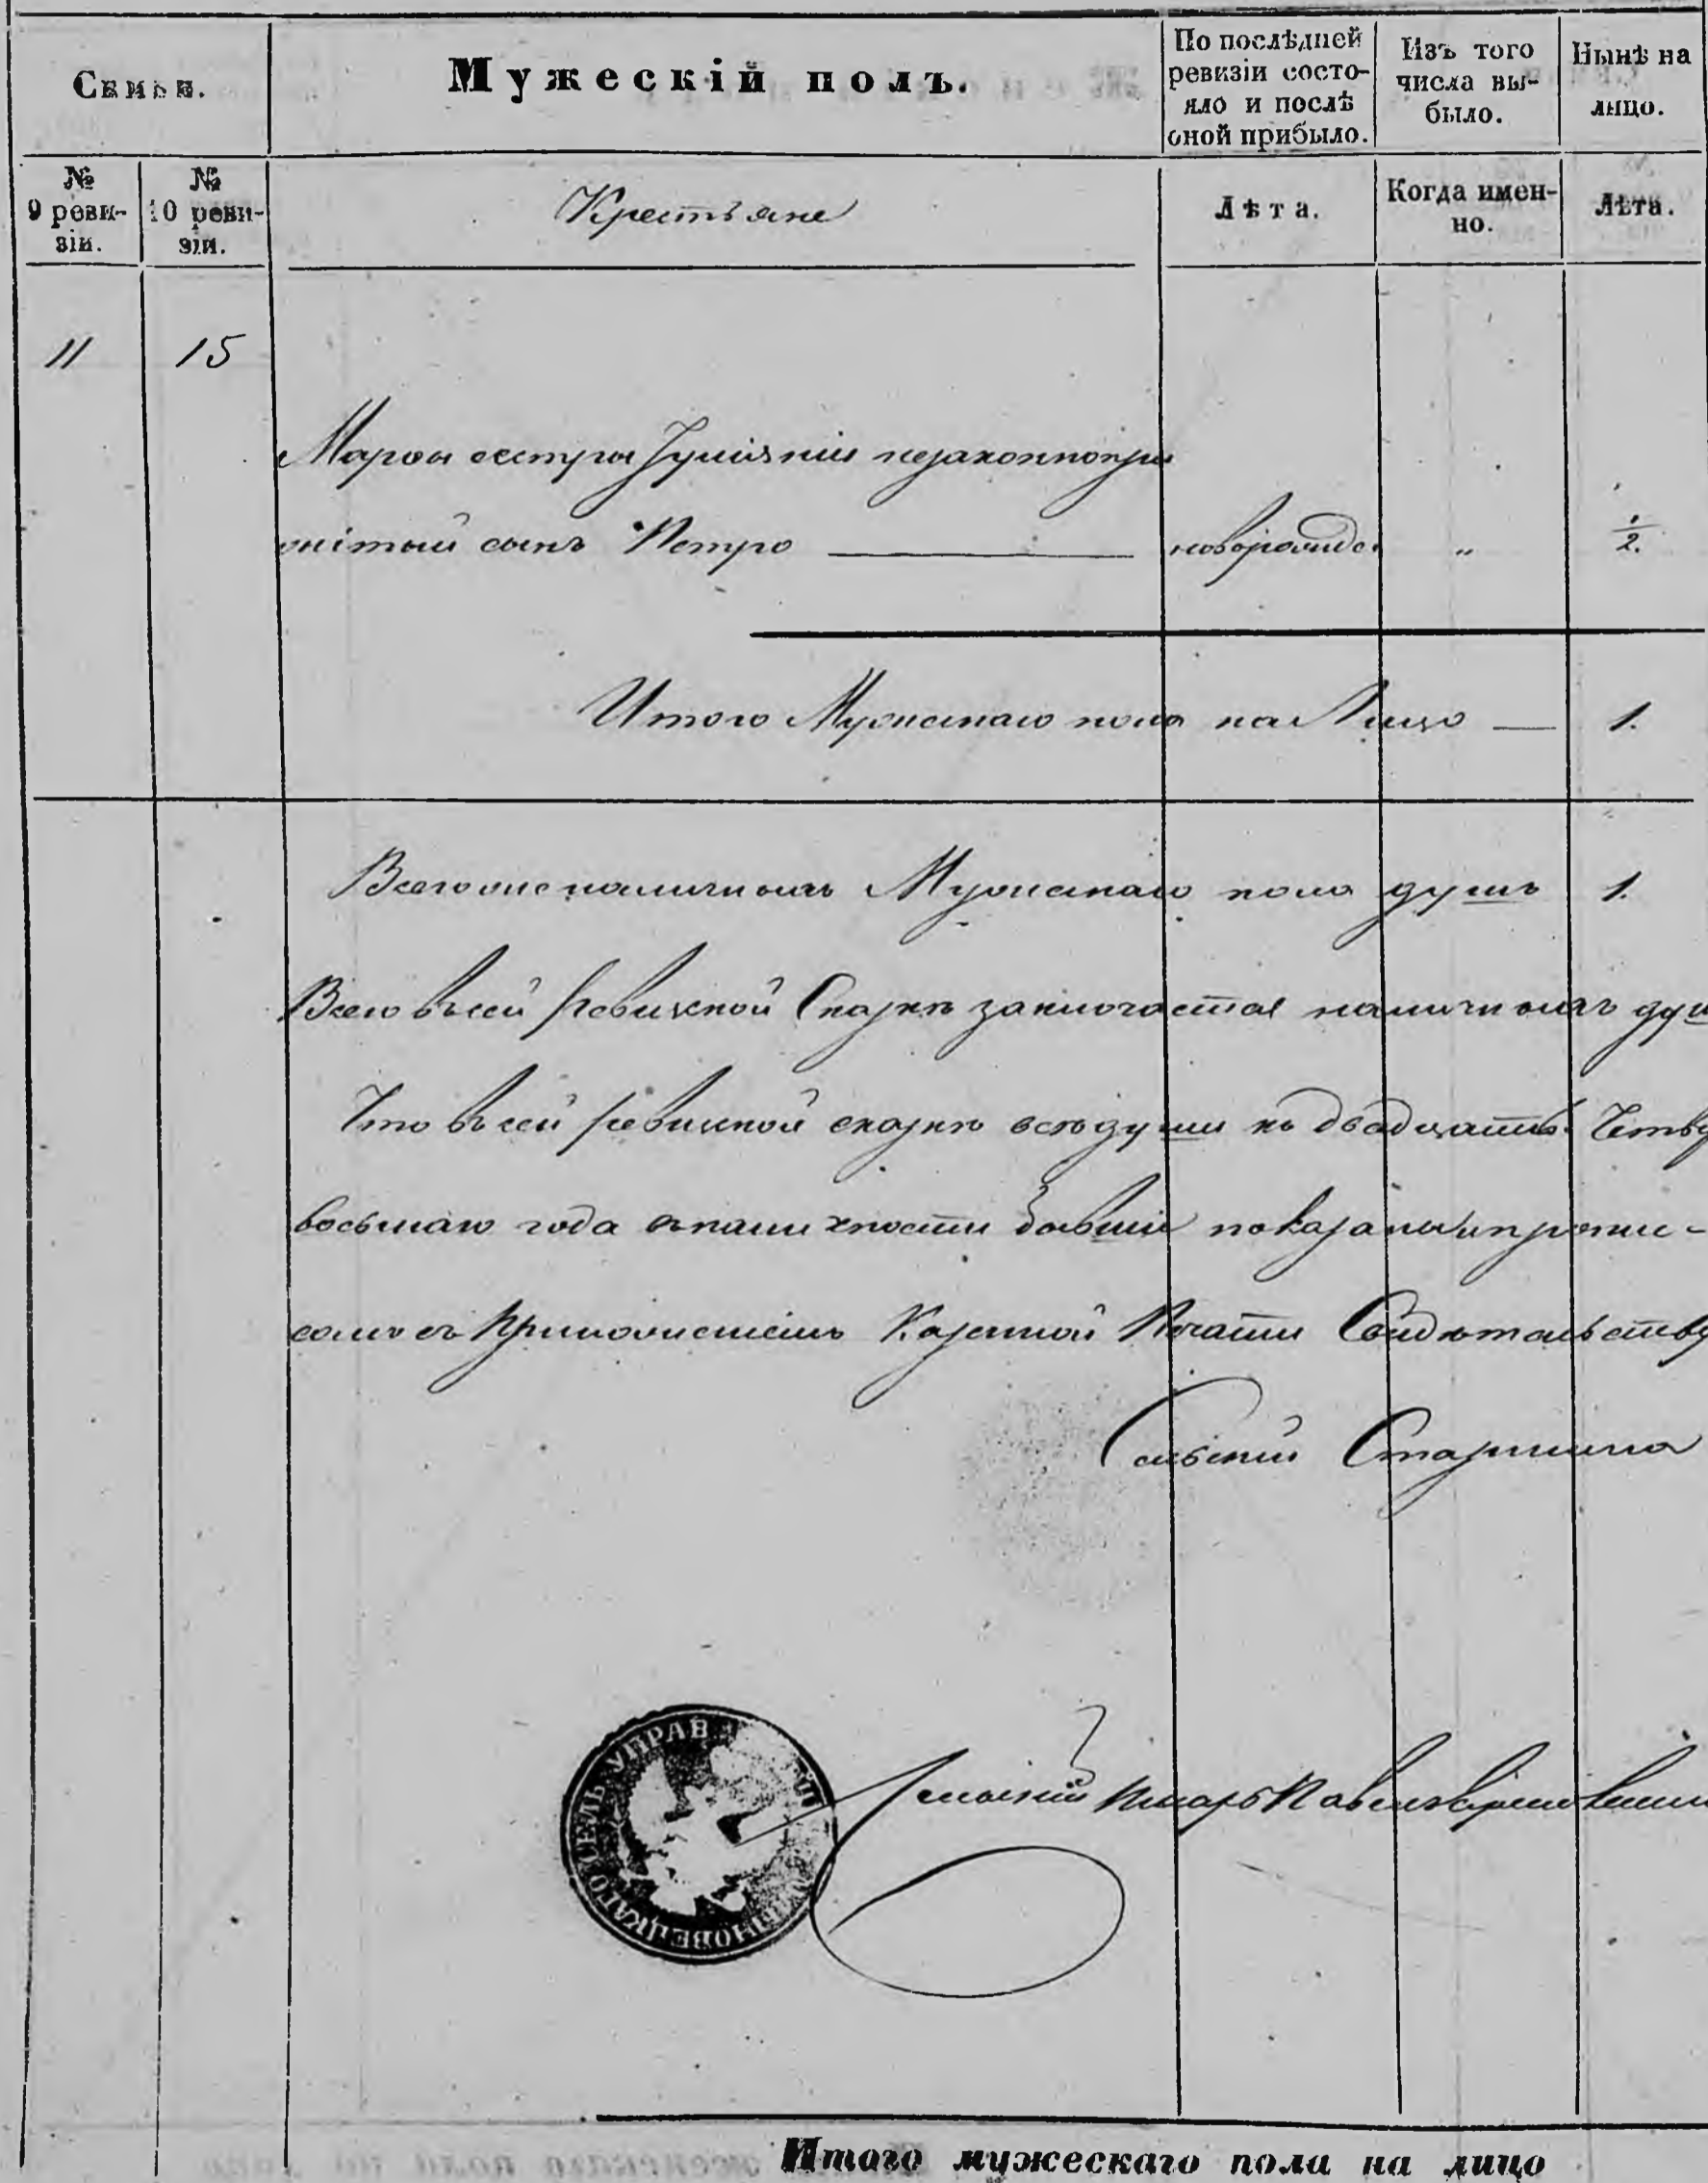 Семьи.
Мужескій полъ.
По послѣдней ревизіи состо-
яло и послѣ
оной прибыло.
Изъ того
числа вы-
было.
Нынѣ на
лицо.
№
9 реви-
зіи.
№
10 реви-
зіи.
Крестьяне
Лѣта.
Когда имен-
но.
Лѣта.
11 15
Марѳы сестры незаконнопри
житый сынъ Петро новорожде. „ 1/2.
Итого Мужескаго пола на Лицо — 1.
Всего наличныхъ Мужескаго пола душъ 1.
Всего въ сей Ревизской Сказкѣ заключается наличныхъ душ
Что въ сей ревизской сказкѣ всѣ души по двадцать Четве
восьмаго года въ наличности бывшіе показаны и прописе-
съ Приложеніемъ Казенной Печати Свидѣтельству
Сельскій Старшина
УПРАВ
НОВЕЦКАГО СЕЛЬ
Сельскій Писарь Павелъ
Итого мужескаго пола на лицо